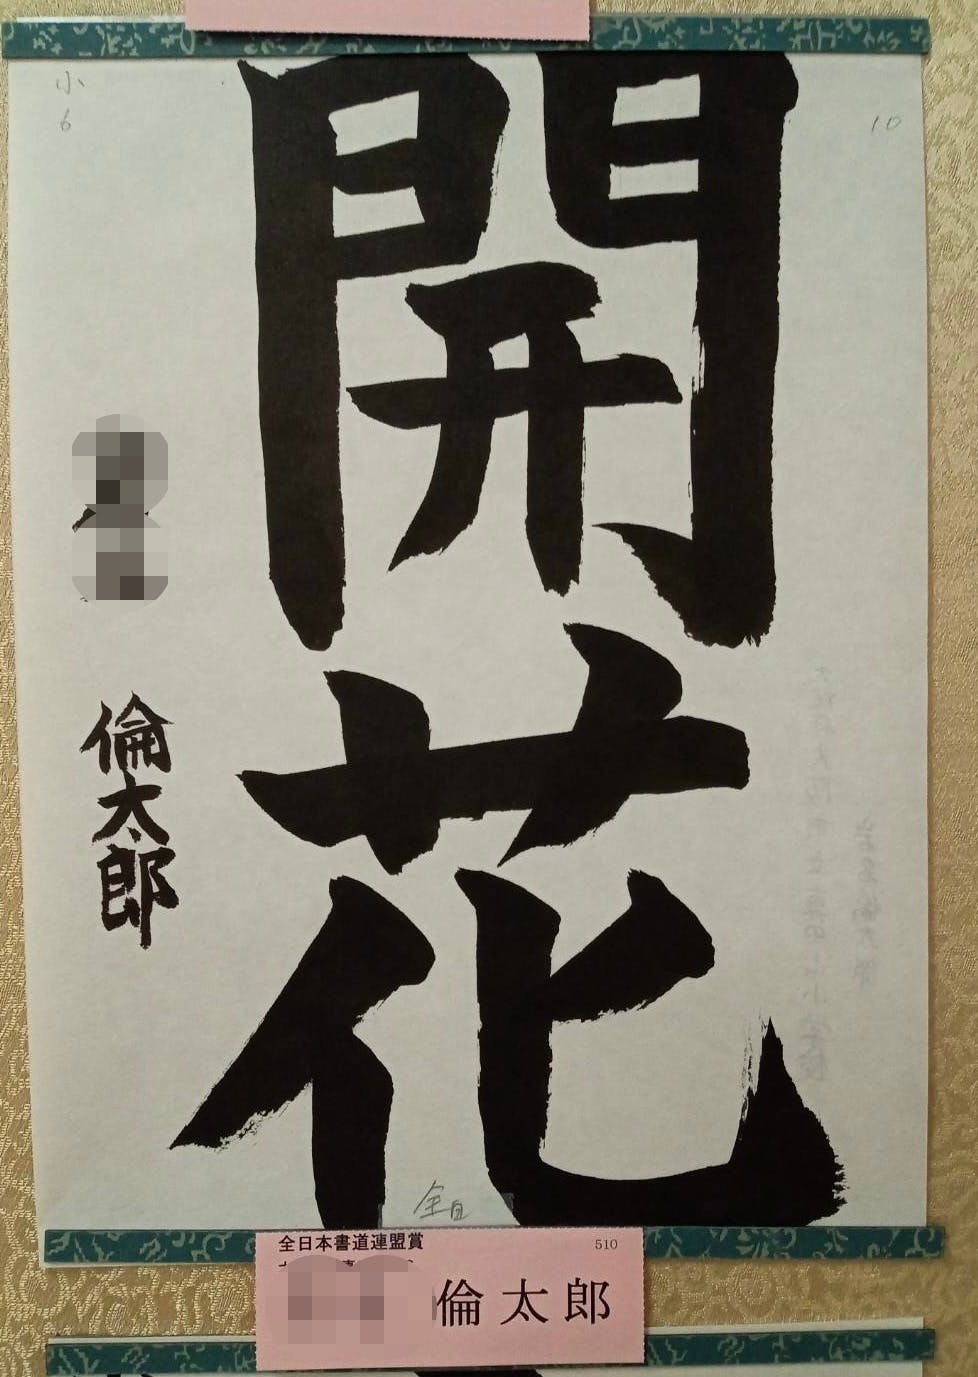 小
6
10
開花
倫太郎
全日
全日本書道連盟賞
510
倫太郎